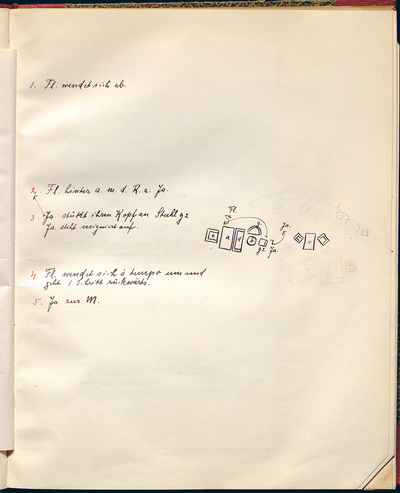 1. Fl. wendet sich ab.
2. Fl. hinter a. m. d. R. a. Ja.
3. Ja. stützt ihren Kopf an Stuhl g2
Ja. steht resigniert auf.
Fl.
Ja.
a
g2
Ja.
4. Fl. wendet sich à tempo um und
geht 1 Schritt rückwärts.
5. Ja. zur M.